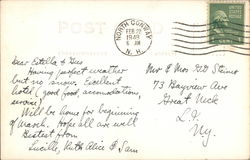 POST CARD
NORTH CONWAY
FEB 22
1949
6 AM
N. H.
Dear Estelle & Gus
Having perfect weather
but no snow. Excellent
hotel (good food, accomodations,
service)
Will be home for beginning
of March. Hope all are well
Best from
Lucille, Ruth Alice & Sam
Mr & Mrs
73 Bayview Ave
Great Neck
L. I.
Ny.